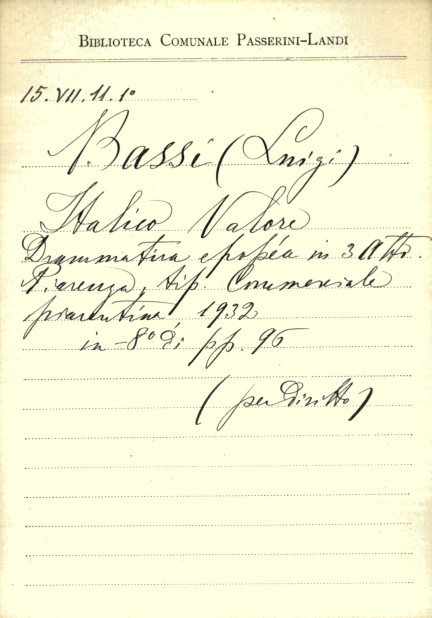 BIBLIOTECA COMUNALE PASSERINI-LANDI
15.VII.11.1º
Bassi (Luigi)
Italico Valore
Drammatica epopéa in 3 Atti.
Piacenza, tip. Commerciale
piacentina 1932
in-8º di pp. 96
(per Diritto)